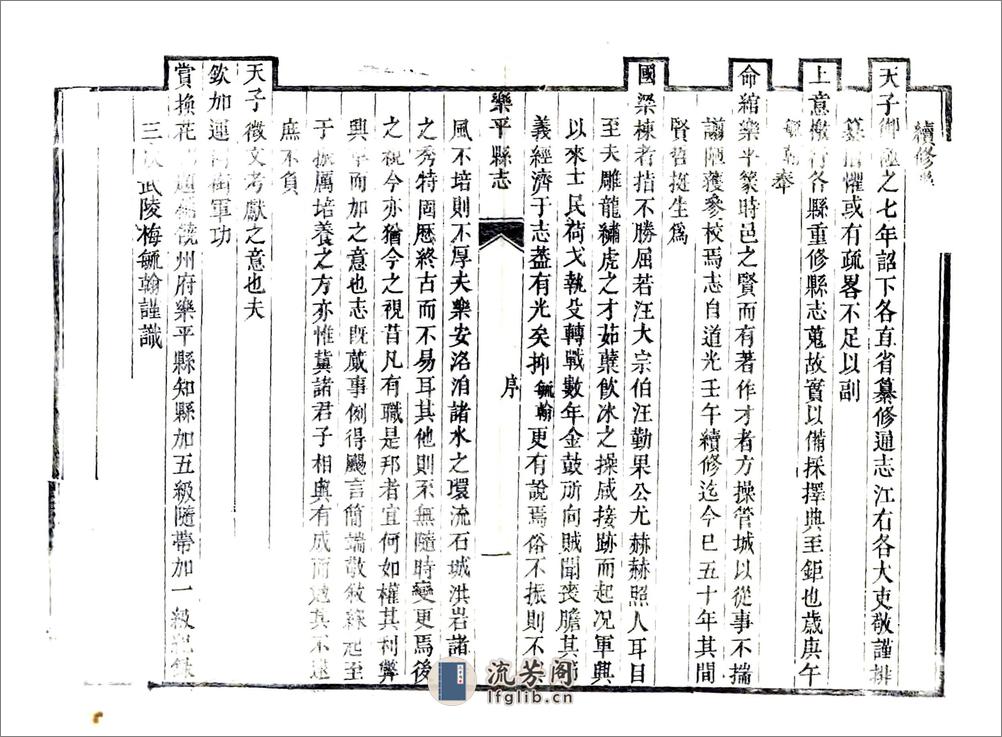 續修
天子御極之七年詔下各直省纂修通志江右各大吏敬謹排
纂猶懼或有疏畧不足以副
上意檄行各縣重修縣志蒐故實以備採擇典至鉅也歲庚午
毓翰奉
命綰樂平篆時邑之賢而有著作才者方操管城以從事不揣
譾陋獲參校焉志自道光壬午續修迄今已五十年其間
賢哲挺生爲
國梁棟者指不勝屈若汪大宗伯汪勤果公尤赫赫照人耳目
至夫雕龍繡虎之才茹蘗飲冰之操咸接跡而起况軍興
以來士民荷戈執殳轉戰數年金鼓所向賊聞喪膽其
義經濟于志葢有光矣抑毓翰更有說焉俗不振則不
樂平縣志
序
一
風不培則不厚夫樂安洛泊諸水之環流石城洪岩諸
之秀特固歷終古而不易耳其他則不無隨時變更焉後
之視今亦猶今之視昔凡有職是邦者宜何如權其利弊
興學而加之意也志既蕆事例得颺言簡端敬敍緣起至
于振厲培養之方亦惟冀諸君子相與有成而
庶不負
天子徵文考獻之意也夫
欽加運同銜軍功
賞換花翎 饒州府樂平縣知縣加五級隨帶加一級紀錄
三次武陵梅毓翰謹識
流芳阁
lfglib.cn